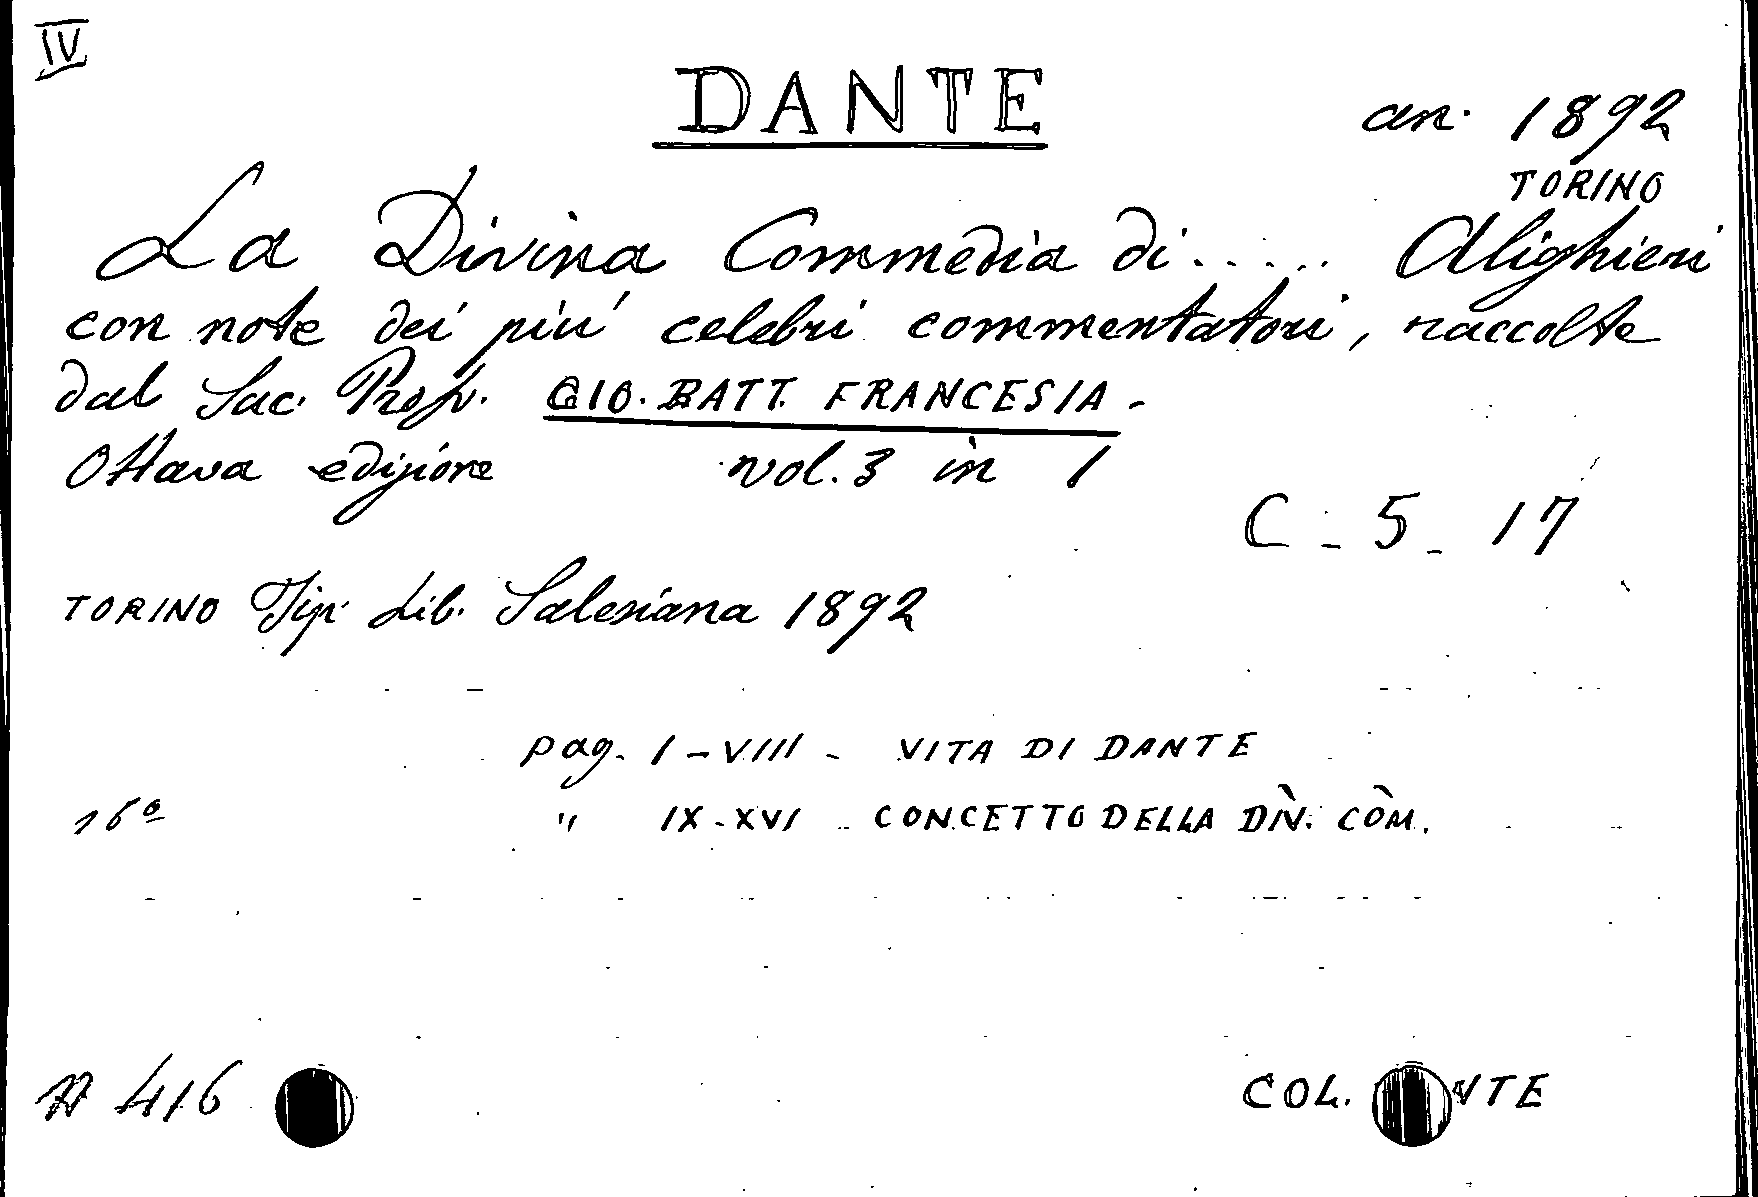 IV
DANTE
an. 1892
TORINO
La Divina Commedia di ..... Alighieri
con note dei piu' celebri commentatori, raccolte
dal Sac. Prof. GIO. BATT. FRANCESIA -
Ottava edizione vol. 3 in 1
C - 5 - 17
TORINO Tip. Lib. Salesiana 1892
pag. I - VIII - VITA DI DANTE
16º " IX - XVI - CONCETTO DELLA DIV. COM.
A 416
COL.